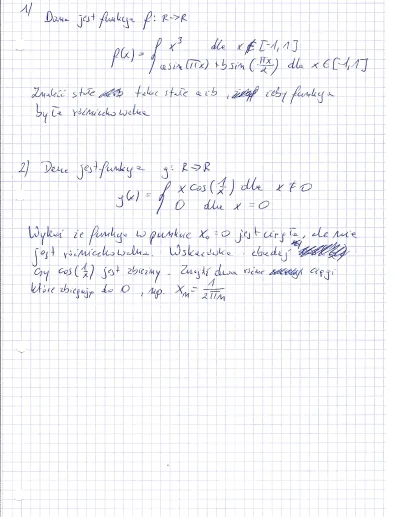 1) Dana jest funkcja f: R→R
f(x) = { x³ dla x ∉ [-1,1]
a sin(πx) + b sin(πx/2) dla x ∈ [-1,1]
Znaleźć stałe takie stałe a i b, żeby funkcja
była różniczkowalna
2) Dana jest funkcja g: R→R
g(x) = { x cos(1/x) dla x ≠ 0
0 dla x = 0
Wykaż że funkcja w punkcie x₀ = 0 jest ciągła, ale nie
jest różniczkowalna. Wskazówka: zbadaj
czy cos(1/x) jest zbieżny. Znajdź dwa różne ciągi
które zbiegają do 0, np. xₙ = 1/2πn